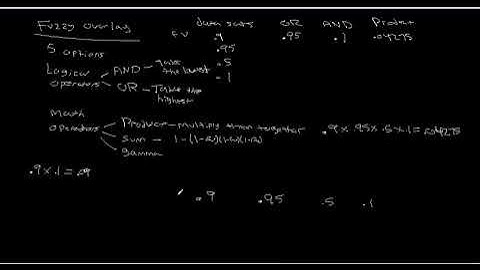 Fuzzy overlay
data sets OR AND Product
FV .9 .95 .1 .04275
.95
5 options
.5
Logical operators
AND - take the lowest
.1
OR - Take the highest
math operators
Product - multiply them together
.9 x .95 x .5 x .1 = .04275
sum - 1-(1-a)(1-b)(1-c)
gamma
.9 x .1 = .09
.9 .95 .5 .1